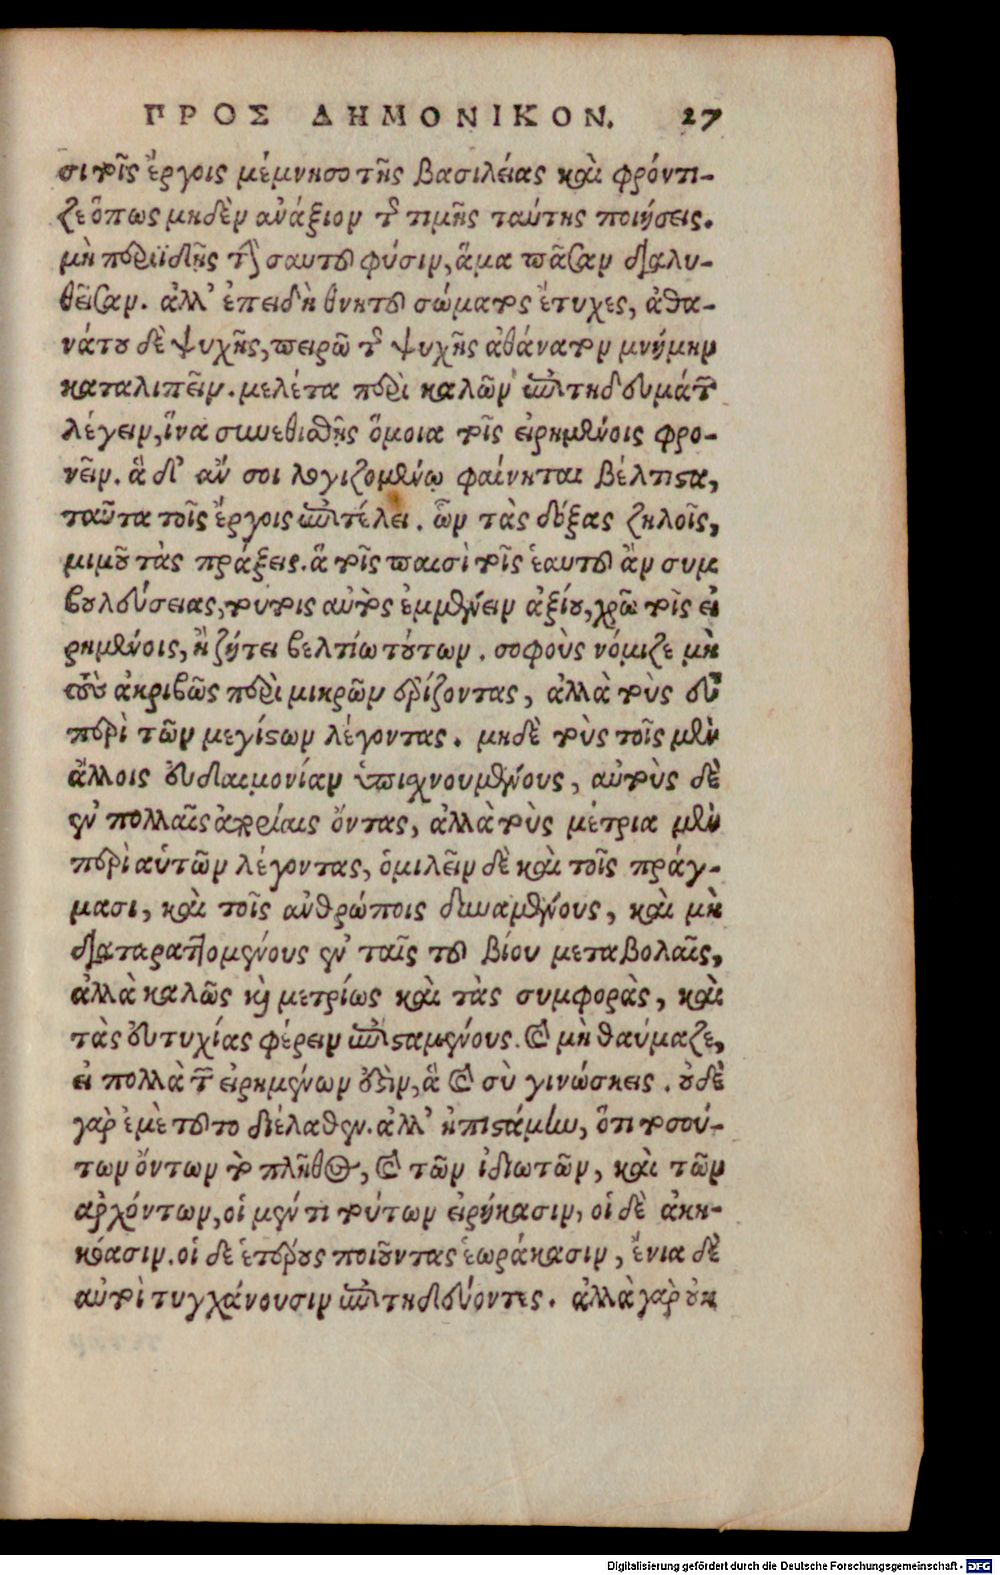 ΠΡΟΣ ΔΗΜΟΝΙΚΟΝ. 27
σι τοῖς ἔργοις μέμνησο τῆς βασιλείας καὶ φρόντι-
ζε ὅπως μηδὲν ἀνάξιον τῆς τιμῆς ταύτης ποιήσεις.
μὴ περιίδῃς τὴν σαυτοῦ φύσιν, ἅμα πᾶσαν διαλυ-
θεῖσαν. ἀλλ' ἐπειδὴ θνητοῦ σώματος ἔτυχες, ἀθα-
νάτου δὲ ψυχῆς, πειρῶ τῆς ψυχῆς ἀθάνατον μνήμην
καταλιπεῖν. μελέτα περὶ καλῶν ἐπιτηδευμάτων
λέγειν, ἵνα συνεθισθῇς ὅμοια τοῖς εἰρημένοις φρο-
νεῖν. ἃ δ' ἄν σοι λογιζομένῳ φαίνηται βέλτιστα,
ταῦτα τοῖς ἔργοις ἐπιτέλει. ὧν τὰς δόξας ζηλοῖς,
μιμοῦ τὰς πράξεις. ἃ τοῖς παισὶ τοῖς ἑαυτοῦ ἂν συμ
βουλεύσειας, τούτοις αὐτὸς ἐμμένειν ἀξίου, χρῶ τοῖς εἰ
ρημένοις, ἢ ζήτει βελτίω τούτων. σοφοὺς νόμιζε μὴ
τοὺς ἀκριβῶς περὶ μικρῶν ἐρίζοντας, ἀλλὰ τοὺς εὖ
περὶ τῶν μεγίστων λέγοντας. μηδὲ τοὺς τοῖς μὲν
ἄλλοις εὐδαιμονίαν ὑπισχνουμένους, αὐτοὺς δὲ
ἐν πολλαῖς ἀπορίαις ὄντας, ἀλλὰ τοὺς μέτρια μὲν
περὶ αὑτῶν λέγοντας, ὁμιλεῖν δὲ καὶ τοῖς πράγ-
μασι, καὶ τοῖς ἀνθρώποις δυναμένους, καὶ μὴ
διαταραττομένους ἐν ταῖς τοῦ βίου μεταβολαῖς,
ἀλλὰ καλῶς καὶ μετρίως καὶ τὰς συμφορὰς, καὶ
τὰς εὐτυχίας φέρειν ἐπισταμένους. καὶ μὴ θαύμαζε,
εἰ πολλὰ τῶν εἰρημένων ἐστὶν, ἃ καὶ σὺ γινώσκεις. οὐδὲ
γὰρ ἐμὲ τοῦτο διέλαθεν. ἀλλ' ἠπιστάμην, ὅτι τοσού-
των ὄντων τὸ πλῆθος, καὶ τῶν ἰδιωτῶν, καὶ τῶν
ἀρχόντων, οἱ μέν τι τούτων εἰρήκασιν, οἱ δὲ ἀκη-
κόασιν. οἱ δὲ ἑτέρους ποιοῦντας ἑωράκασιν, ἔνια δὲ
αὐτοὶ τυγχάνουσιν ἐπιτηδεύοντες. ἀλλὰ γὰρ οὐκ
Digitalisierung gefördert durch die Deutsche Forschungsgemeinschaft - DFG